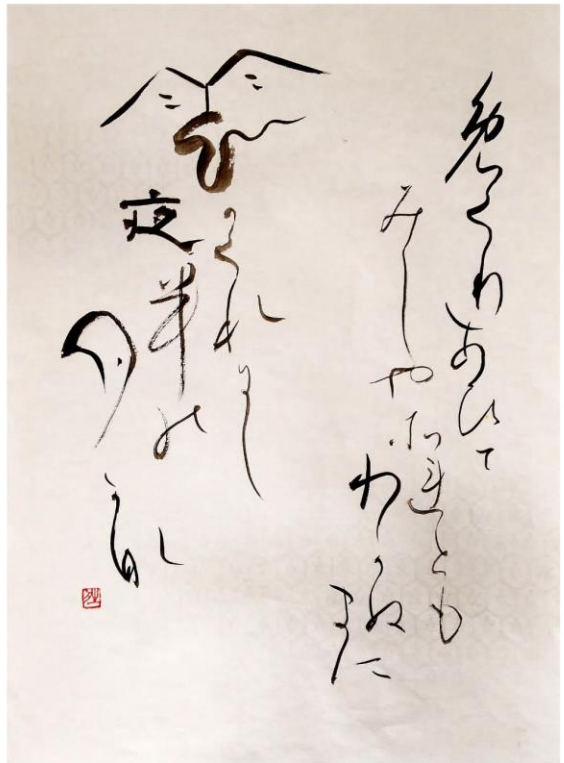 免くりあひて
みしやそ連とも
わかぬ
まに
雲
かくれ
にし
夜半の
月
かな